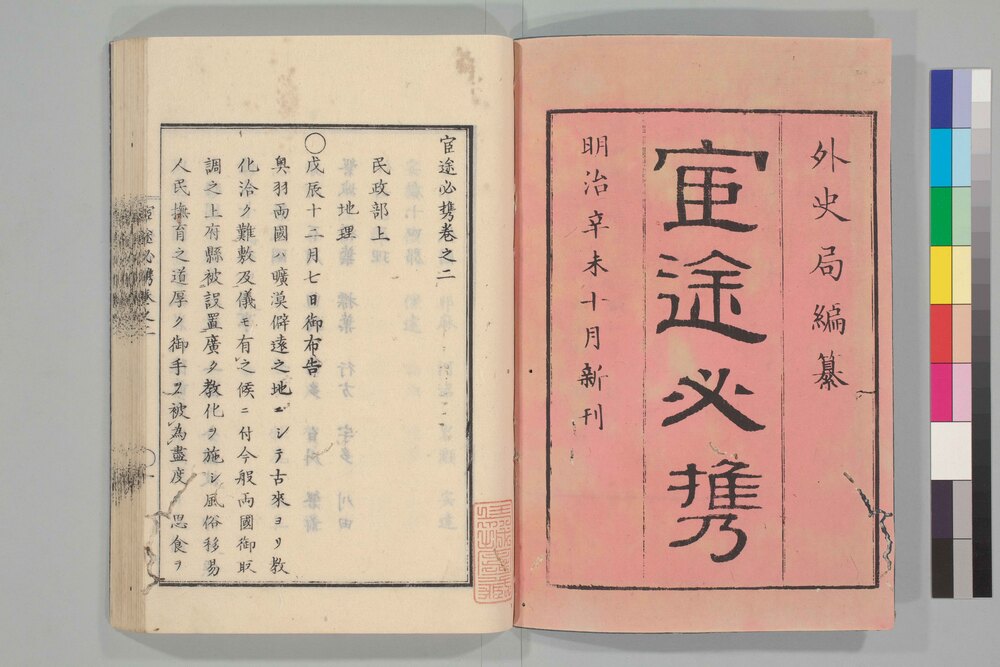 外史局編纂
宦途必携
明治辛未十月新刊
宦途必携巻之二
民政部上
地理
○戊辰十二月七日御布告
奥羽両國ハ曠漠僻遠之地ニシテ古來ヨリ教
化洽ク難敷及儀モ有之候ニ付今般両國御取
調之上府縣被設置廣ク教化ヲ施シ風俗移易
人民撫育之道厚ク御手ヲ被為盡度 思食ヲ
宦途必携巻之二